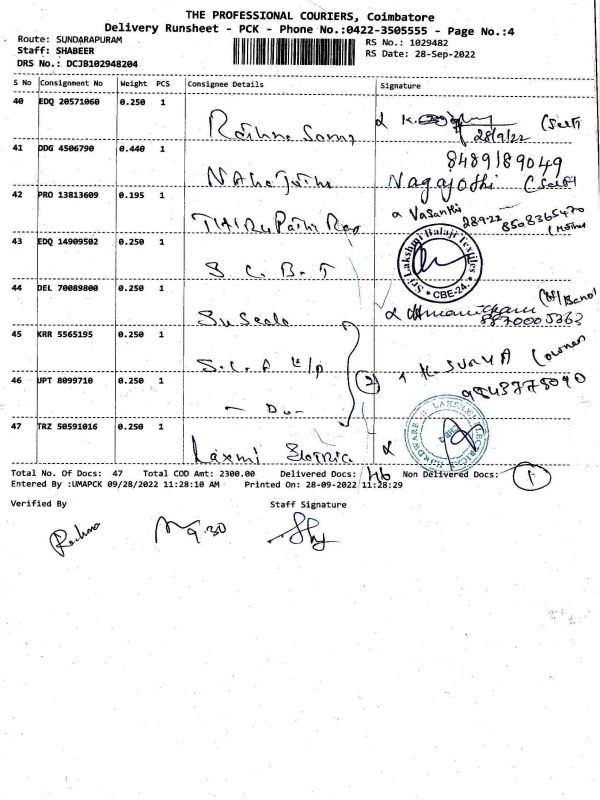 THE PROFESSIONAL COURIERS, Coimbatore
Delivery Runsheet - PCK - Phone No.:0422-3505555 - Page No.:4
Route: SUNDARAPURAM RS No.: 1029482
Staff: SHABEER RS Date: 28-Sep-2022
DRS No.: DCJB102948204
S No Consignment No Weight PCS Consignee Details Signature
40 EDQ 20571060 0.250 1
28/9/22 (Self)
41 DDG 4506790 0.440 1 8489189049
Nagajothi (Self)
42 PRO 13813609 0.195 1 Vasanthi 289.22 8508365470
(Mother)
43 EDQ 14909502 0.250 1 S. C. B. T
Sri Lakshmi Balaji Textiles
* CBE-24. *
44 DEL 70089800 0.250 1 Suseela
45 KRR 5565195 0.250 1 S.C.A (2) K. SURYA (owner
46 UPT 8099710 0.250 1 - Do - 9843778090
47 TRZ 50591016 0.250 1 Laxmi
LAKSHMI ELECTRICAL HARDWARE
Total No. Of Docs: 47 Total COD Amt: 2300.00 Delivered Docs: 46 Non Delivered Docs: 1
Entered By :UMAPCK 09/28/2022 11:28:10 AM Printed On: 28-09-2022 11:28:29
Verified By Staff Signature
9.30